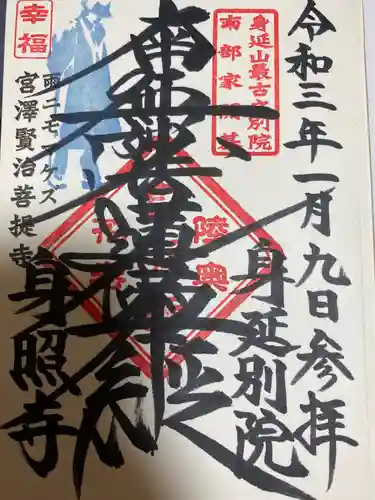 令和三年一月九日参拝
身延山最古の別院
南部家開基
身延別院
南無妙法蓮華経
陸奥
幸福
雨ニモマケズ
宮澤賢治菩提寺
身照寺